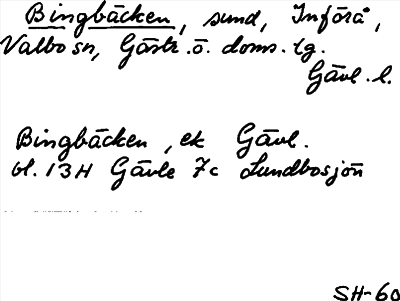 Bingbäcken, sund, Införå,
Valbo sn, Gästr. ö. doms. lg.
Gävl. l.
Bingbäcken, ek Gävl.
bl. 13H Gävle 7c Lundbosjön
SH-60